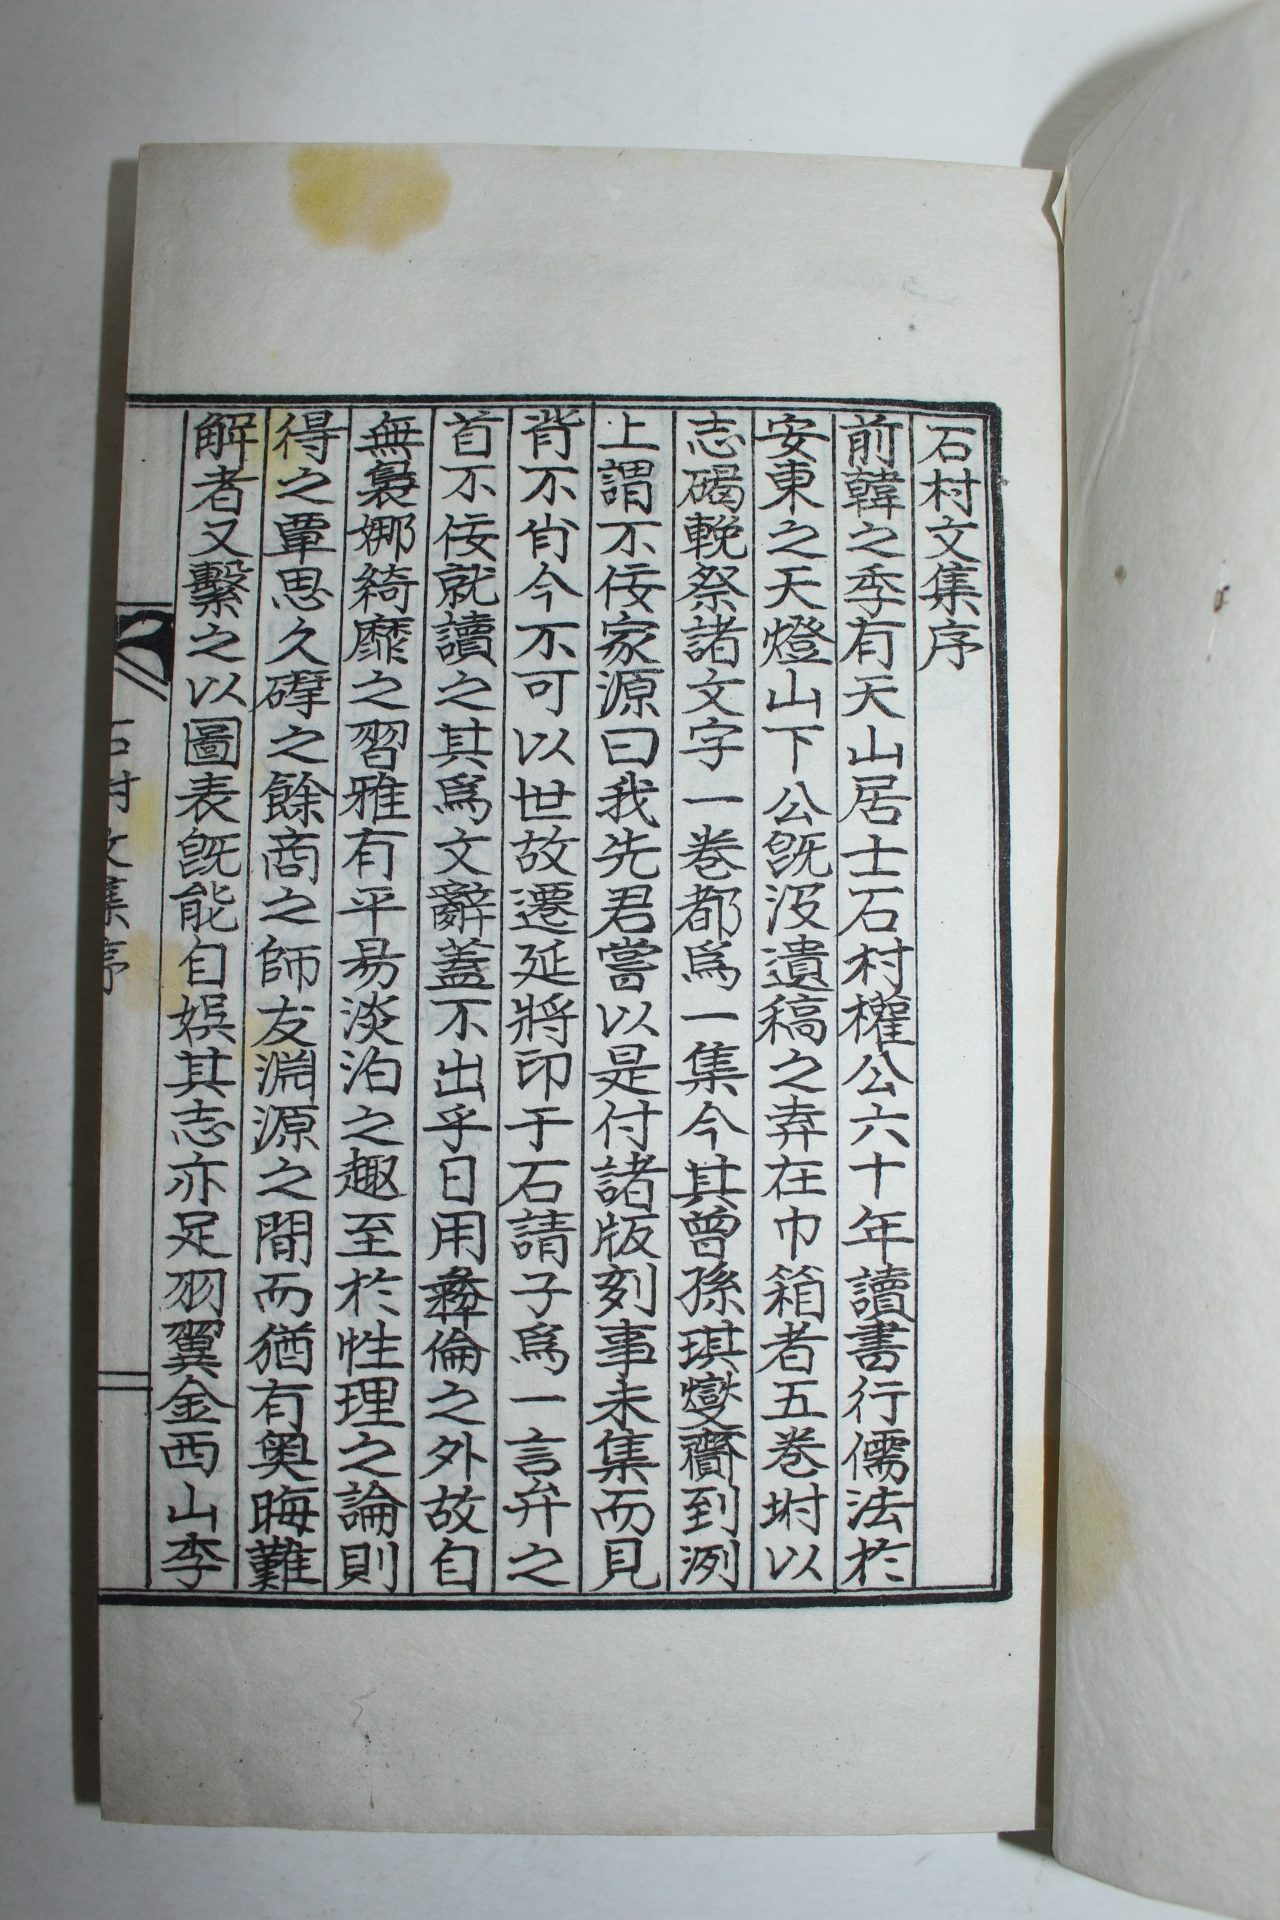 石村文集序
前韓之季有天山居士石村權公六十年讀書行儒法於
安東之天燈山下公旣沒遺稿之弆在巾箱者五巻坿以
志碣輓祭諸文字一巻都爲一集今其曾孫琪燮齎到洌
上謂不佞家源曰我先君嘗以是付諸版刻事未集而見
背不肖今不可以世故遷延將印于石請子爲一言弁之
首不佞就讀之其爲文辭蓋不出乎日用彝倫之外故自
無裊娜綺靡之習雅有平易淡泊之趣至於性理之論則
得之覃思久硺之餘商之師友淵源之間而猶有奧晦難
解者又繫之以圖表旣能自娛其志亦足羽翼金西山李
石村文集序